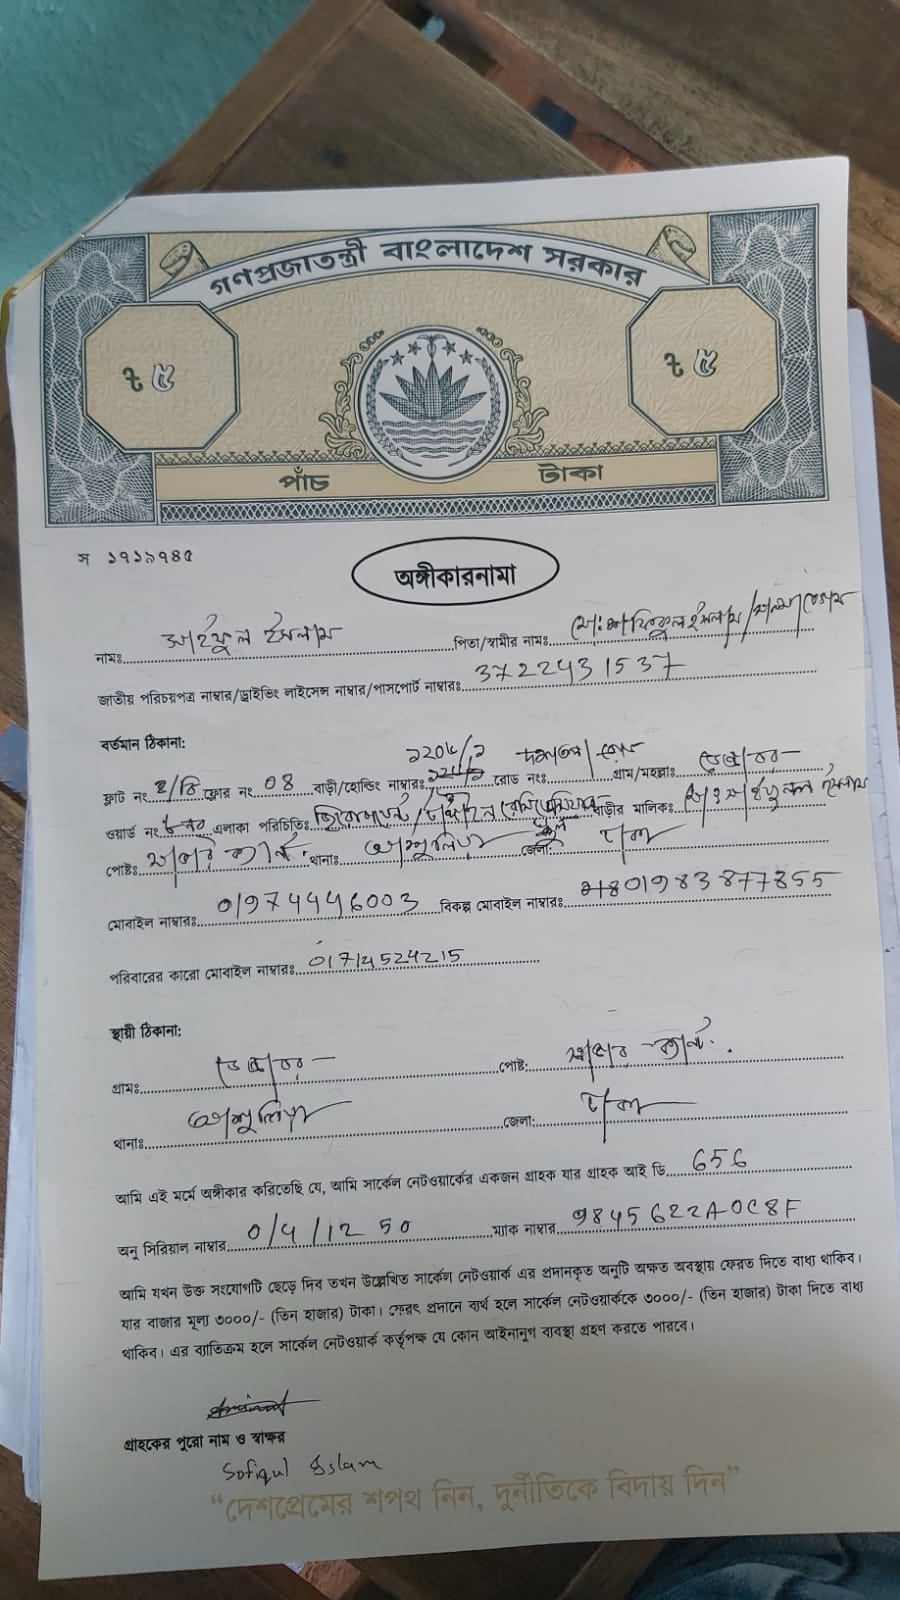 গণপ্রজাতন্ত্রী বাংলাদেশ সরকার
৳ ৫ ৳ ৫
পাঁচ টাকা
স ১৭১৯৭৪৫
অঙ্গীকারনামা
নামঃ সাইফুল ইসলাম পিতা/স্বামীর নামঃ মো: শফিকুল ইসলাম /
জাতীয় পরিচয়পত্র নাম্বার/ড্রাইভিং লাইসেন্স নাম্বার/পাসপোর্ট নাম্বারঃ 3722431537
বর্তমান ঠিকানা:
ফ্লাট নং ২/বি ফ্লোর নং 04 বাড়ী/হোল্ডিং নাম্বারঃ রোড নংঃ গ্রাম/মহল্লাঃ
ওয়ার্ড নং এলাকা পরিচিতিঃ বাড়ীর মালিকঃ ইসলাম
পোষ্টঃ থানাঃ আশুলিয়া জেলা: ঢাকা
মোবাইল নাম্বারঃ 01974446003 বিকল্প মোবাইল নাম্বারঃ 01983877855
পরিবারের কারো মোবাইল নাম্বারঃ 01714524215
স্থায়ী ঠিকানা:
গ্রামঃ পোষ্ট:
থানাঃ আশুলিয়া জেলা: ঢাকা
আমি এই মর্মে অঙ্গীকার করিতেছি যে, আমি সার্কেল নেটওয়ার্কের একজন গ্রাহক যার গ্রাহক আই ডি 656
অনু সিরিয়াল নাম্বার 0/4/12 50 ম্যাক নাম্বার 9845622A0C8F
আমি যখন উক্ত সংযোগটি ছেড়ে দিব তখন উল্লেখিত সার্কেল নেটওয়ার্ক এর প্রদানকৃত অনুটি অক্ষত অবস্থায় ফেরত দিতে বাধ্য থাকিব।
যার বাজার মূল্য ৩০০০/- (তিন হাজার) টাকা। ফেরৎ প্রদানে ব্যর্থ হলে সার্কেল নেটওয়ার্ককে ৩০০০/- (তিন হাজার) টাকা দিতে বাধ্য
থাকিব। এর ব্যাতিক্রম হলে সার্কেল নেটওয়ার্ক কর্তৃপক্ষ যে কোন আইনানুগ ব্যবস্থা গ্রহণ করতে পারবে।
গ্রাহকের পুরো নাম ও স্বাক্ষর
Sofiqul Islam
“দেশপ্রেমের শপথ নিন, দুর্নীতিকে বিদায় দিন”